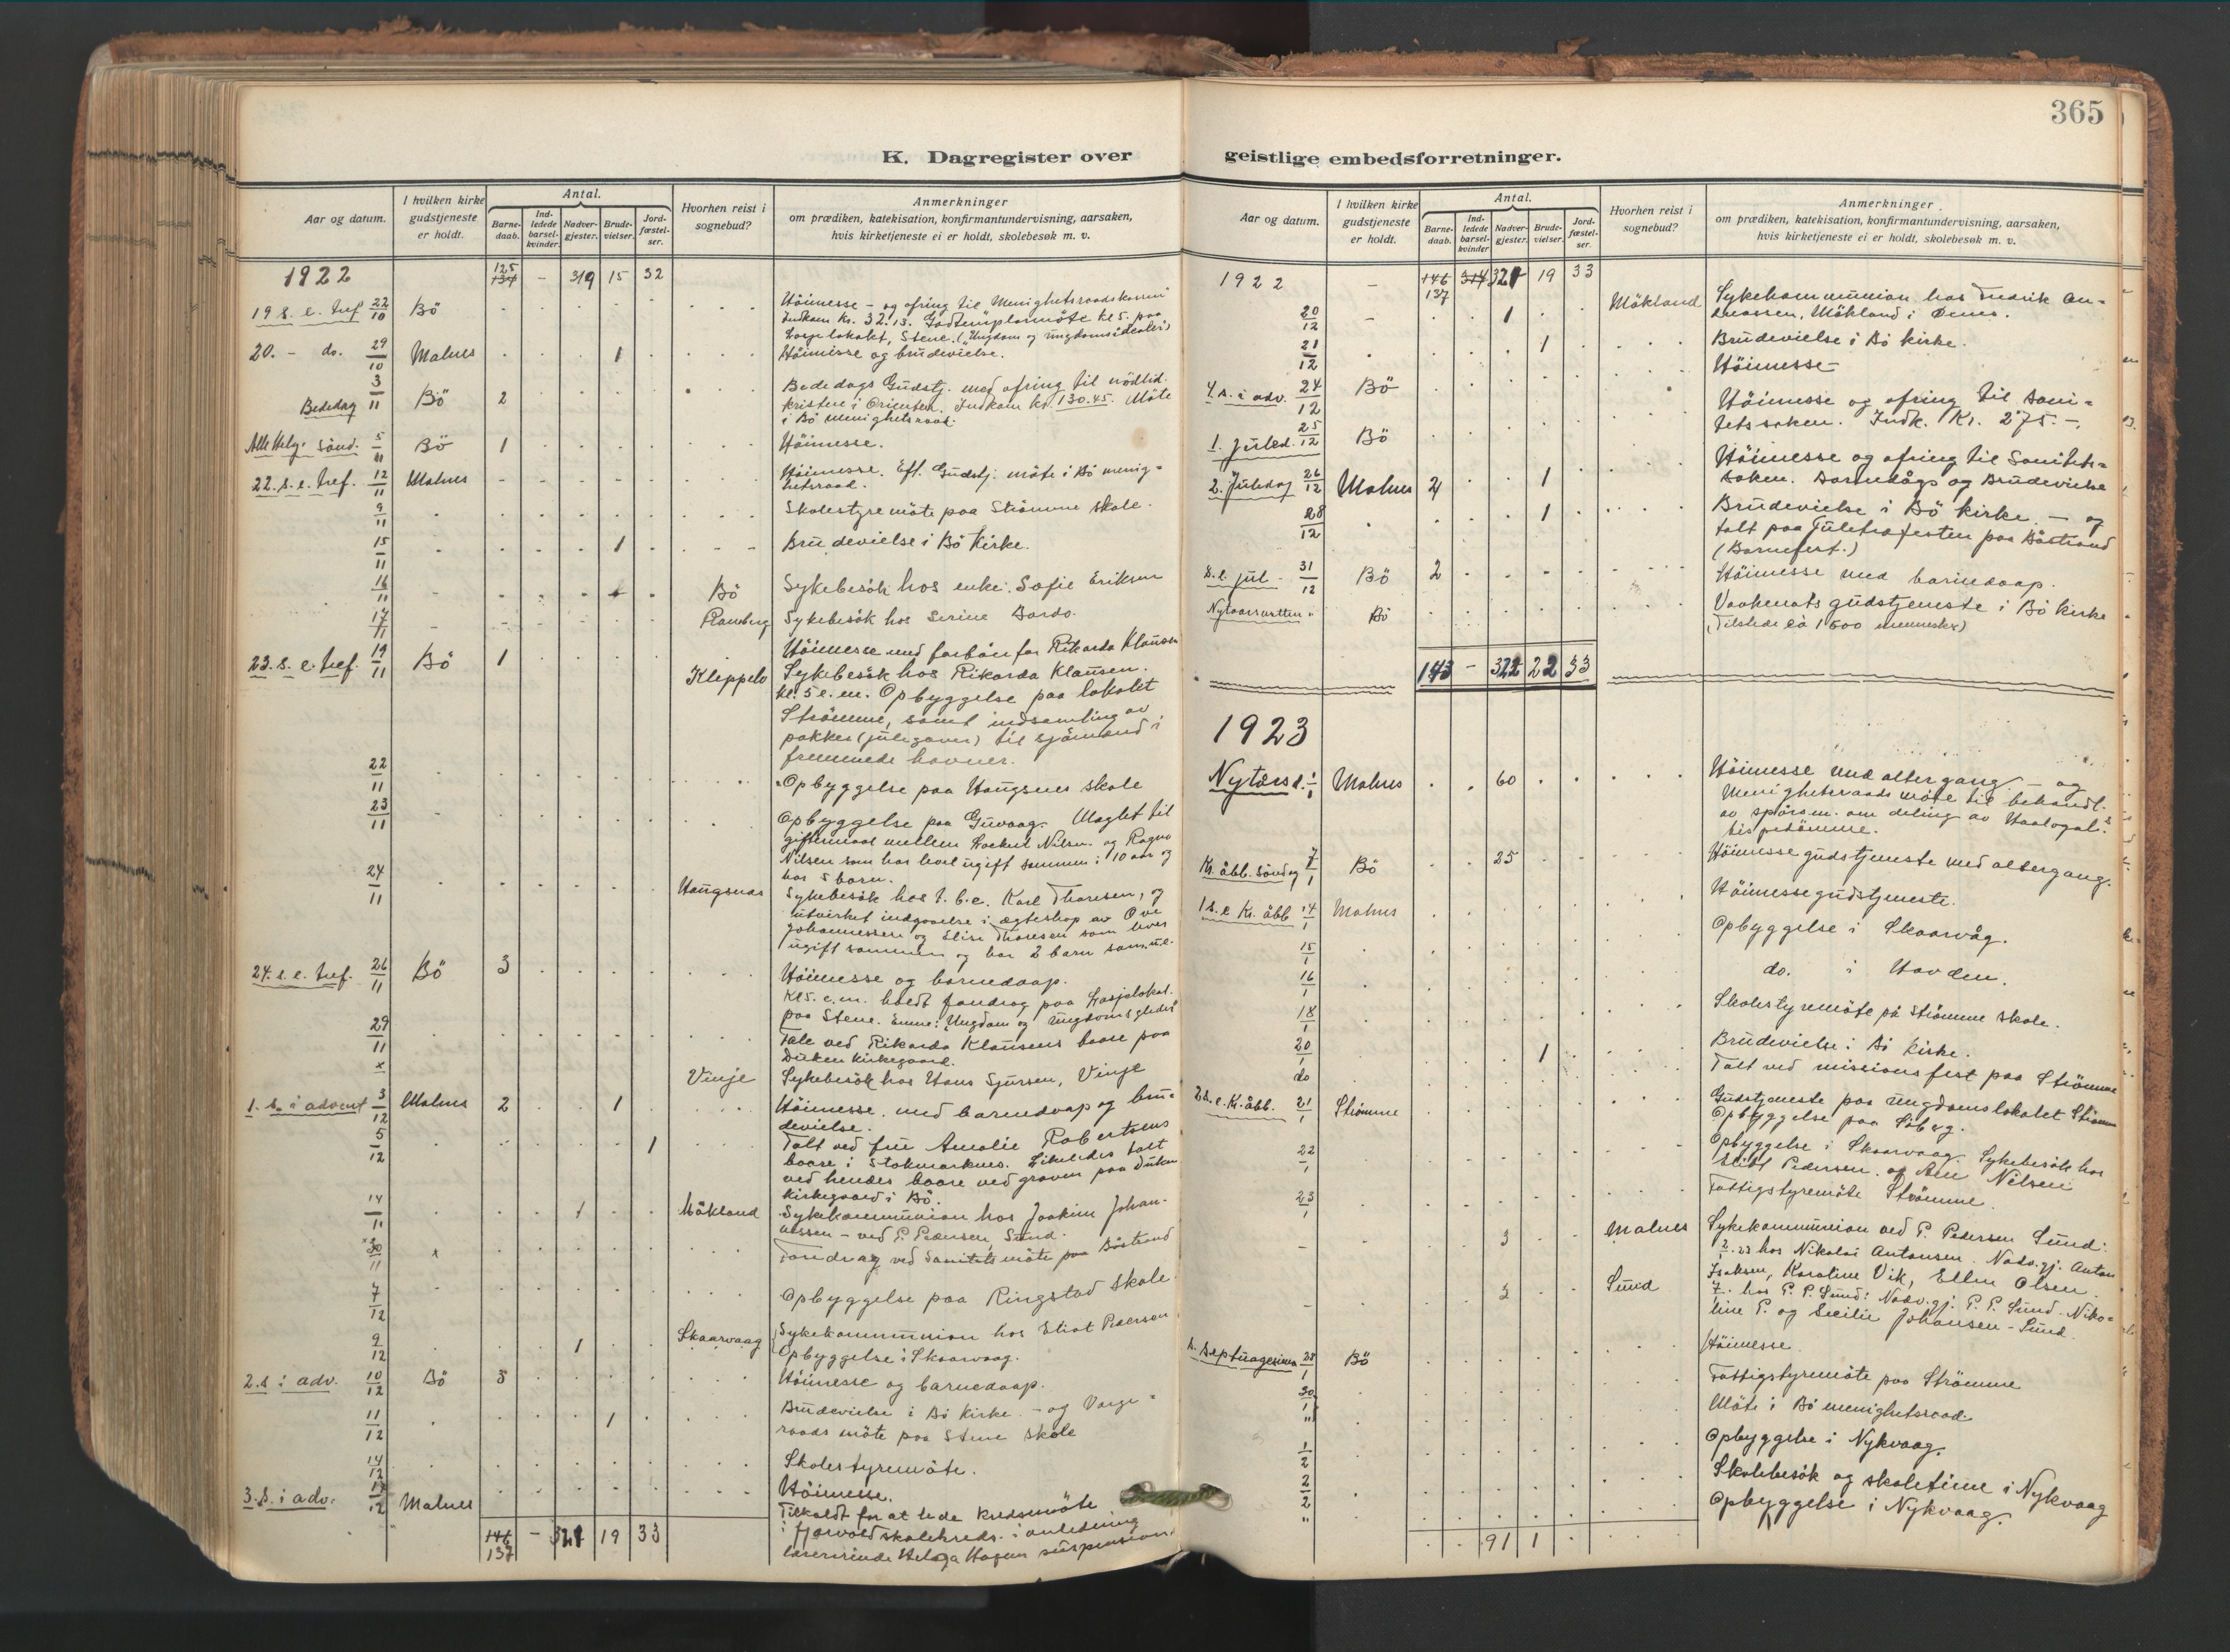 365
K. Dagregister over
Aar og datum.
I hvilken kirke gudstjeneste er holdt.
Antal.
Barne-daab.
Ind-ledede barsel-kvinder.
Nadver-gjester.
Brude-vielser.
Jord-fæstel-ser.
Hvorhen reist i sognebud?
Anmerkninger
om prædiken, katekisation, konfirmantundervisning, aarsaken,
hvis kirketjeneste ei er holdt, skolebesøk m. v.
1922 125 134 - 319 15 32
19 s. e. tref 22/10 Bö Höimesse - og ofring til Menighetsraadskassen
Indkom Kr. 32.13. Godtemplarmöte kl 5. paa
Losjelokalet, Stene. (Ungdom og ungdomsidealer)
20. - do. 29/10 Malnes 1 Höimesse og brudevielse.
Bededag 3/11 Bö 2 Bededags Gudstj. med ofring til nödlid.
kristne i Orienten. Indkom kr. 130.45. Möte
i Bö menighetsraad.
Alle Helg. sönd. 5/11 Bö 1 Höimesse.
22. s. e. tref. 12/11 Malnes Höimesse. Eft. Gudstj. möte i Bö menig=
hetsraad.
9/11 Skolestyremöte paa Strömme skole.
15/11 1 Brudevielse i Bö Kirke.
16/11 Bö Sykebesök hos enke. Sofie Eriksen
17/11 Ramberg Sykebesök hos Serine Bordo.
23. s. e. tref. 19/11 Bö 1 Höimesse med forbön for Rikarda Klausen
Kleppelv Sykebesök hos Rikarda Klausen.
kl. 5 e. m. Opbyggelse paa lokalet
Strömme, samt indsamling av
pakker (julegaver) til sjömænd i
fremmede havner.
22/11 Opbyggelse paa Haugsnes skole
23/11 Opbyggelse paa Guvaag. Maglet til
giftermaal mellem Nilsen og Ragna
Nilsen som har levet ugift sammen i 10 aar og
har 5 barn.
24/11 Haugsnes Sykebesök hos t. b. c. Karl Thoresen, og
utvirket indgaaelse i ægteskap av Ove
Johannessen og Elise Thoresen som lever
ugift sammen og har 2 barn samme.
24. s. e. tref. 26/11 Bö 3 Höimesse og barnedaap.
Kl 5. e. m. holdt foredrag paa Losjelokal.
paa Stene. Emne: "Ungdom og ungdomsglæder"
29/11 Tale ved Rikarda Klausens baare paa
Duken kirkegaard.
x Vinje Sykebesök hos Hans Sjursen, Vinje
1. s. i advent 3/12 Malnes 2 1 Höimesse. med barnedaap og bru=
devielse.
5/12 1 Talt ved frue Amalie Robertsens
baare i Stokmarknes. Likeledes talt
ved hendes baare ved graven paa Duken
kirkegaard i Bö.
14/11 1 Mökland Sykekommunion hos Joakim Johan-
nessen - ved P. Pedersen, Sund.
x 30/11 x Foredrag ved Sanitetsmöte paa Böstrand
7/12 Opbyggelse paa Ringstad skole
9/12 1 Skaarvaag Sykekommunion hos Eliot Pedersen
Opbyggelse i Skaarvaag.
2. s. i adv. 10/12 Bö 3 Höimesse og barnedaap.
11/12 1 Brudevielse i Bö Kirke. - og Verge=
raads möte paa Stene skole
14/12 Skolestyremöte.
3. s. i adv. 17/12 Malnes Höimesse.
Tilkaldt for at lede kredsmöte
i Fjærvold skolekreds. i anledning
lærerinde Helga Hagens suspension.
146 137 - 321 19 33
geistlige embedsforretninger.
Aar og datum.
I hvilken kirke gudstjeneste er holdt.
Antal.
Barne-daab.
Ind-ledede barsel-kvinder
Nadver-gjester.
Brude-vielser.
Jord-fæstel-ser.
Hvorhen reist i sognebud?
Anmerkninger
om prædiken, katekisation, konfirmantundervisning, aarsaken,
hvis kirketjeneste ei er holdt, skolebesøk m. v.
1922 - 146 137 314 321 19 33
20/12 - 1 Mökland Sykekommunion hos Fredrik An=
dreassen, Mökland i Öknes.
21/12 1 Brudevielse i Bö kirke.
4. s. i adv. 24/12 Bö Höimesse
1. Juled. 25/12 Bö Höimesse og ofring til Sani=
tetssaken. Indk. Kr. 275.-.
2. Juledag 26/12 Malnes 4 1 Höimesse og ofring til Sanitets=
saken. Barnedåp og Brudevielse
28/12 1 Brudevielse i Bö Kirke - og
talt paa juletrefesten paa Böstrand
(Barnefest.)
S. e. jul - 31/12 Bö 2 Höimesse med barnedaap.
Nytaarsnatten " Bö Vaakenats gudstjeneste i Bö kirke
(Tilstede ca 1500 mennesker)
143 - 322 22 33
1923
Nytårsd. 1/1 Malnes 60 Höimesse med altergang - og
Menighetsraads möte til behandl.
av spörsm. om deling av Haalogal.s
bispedömme.
Kr. åbb. Söndag 7/1 Bö 25 Höimessegudstjeneste med altergang.
1 s. e Kr. åbb 14/1 Malnes Höimessegudstjeneste.
15/1 Opbyggelse i Skaarvåg.
16/1 do. i Hovden.
18/1 Skolestyremöte på Strömme skole.
20/1 1 Brudevielse i Bö kirke.
do Talt ved missionsfest paa Strömme
2 s. e. Kr. åbb. 21/1 Strömme Gudstjeneste paa Ungdomslokalet Strömme
Opbyggelse paa Söberg.
22/1 Opbyggelse i Skaarvaag. Sykebesök hos
Eliot Pedersen og Nilsen
23/1 Fattigstyremöte Strömme.
- 3 Malnes Sykekommunion ved P. Pedersen Sund:
2/1.23 hos Nikolai Antonsen. Nadv.gj. Anton
Isaksen, Karoline Vik, Ellen Olsen
- 3 Sund 7/1. hos P. P. Sund: Nadv.gj: P. P. Sund. Niko=
line P. og Secilie Johansen - Sund.
s. septuagesima 28/1 Bö Höimesse.
30/1 Fattigstyremöte paa Strömme
" Möte i Bö menighetsraad
1/2 Opbyggelse i Nykvaag.
2/2 Skolebesök og skoletime i Nykvaag
" Opbyggelse i Nykvaag.
91 1